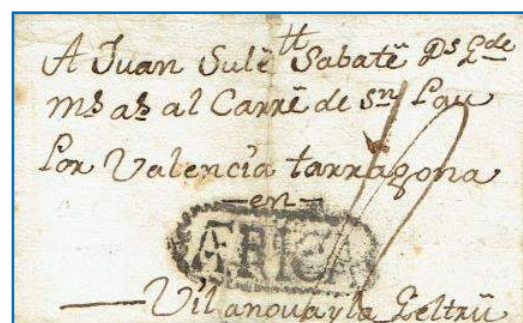 A Juan Sulē tt Sabatē Ds Gde
ms as al Carrē de Sn Pau
Por Valencia tarragona
—en—
AFRICA
—Vilanova y la Geltrŭ